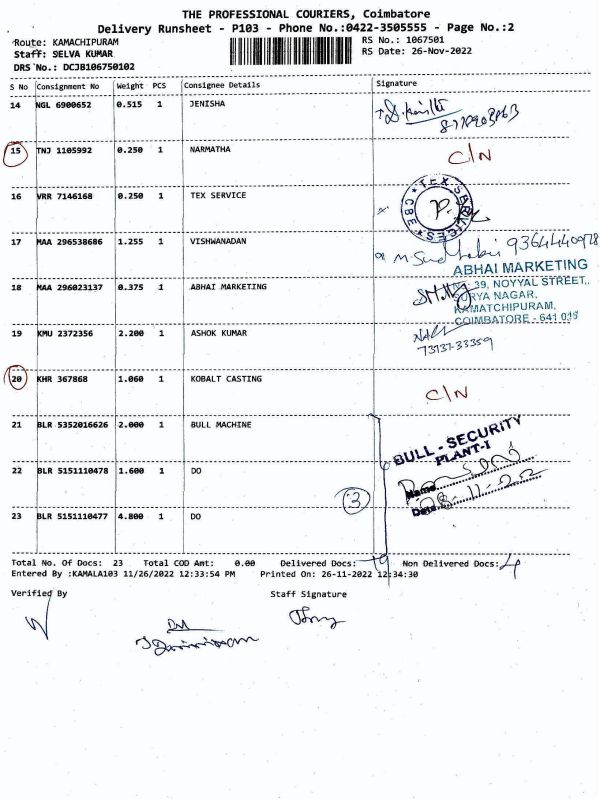 THE PROFESSIONAL COURIERS, Coimbatore
Delivery Runsheet - P103 - Phone No.:0422-3505555 - Page No.:2
Route: KAMACHIPURAM RS No.: 1067501
Staff: SELVA KUMAR RS Date: 26-Nov-2022
DRS No.: DCJB106750102
S No Consignment No Weight PCS Consignee Details Signature
14 NGL 6900652 0.515 1 JENISHA
15 TNJ 1105992 0.250 1 NARMATHA C/N
16 VRR 7146168 0.250 1 TEX SERVICE TEX SERVICES CBE
17 MAA 296538686 1.255 1 VISHWANADAN
ABHAI MARKETING
18 MAA 296023137 0.375 1 ABHAI MARKETING 39, NOYYAL STREET,
SURYA NAGAR,
KAMATCHIPURAM,
COIMBATORE - 641 015
19 KMU 2372356 2.200 1 ASHOK KUMAR
73737-33359
20 KHR 367868 1.060 1 KOBALT CASTING C/N
21 BLR 5352016626 2.000 1 BULL MACHINE
BULL - SECURITY
PLANT-I
22 BLR 5151110478 1.600 1 DO
Name
3
Date
23 BLR 5151110477 4.800 1 DO
Total No. Of Docs: 23 Total COD Amt: 0.00 Delivered Docs: 19 Non Delivered Docs: 4
Entered By :KAMALA103 11/26/2022 12:33:54 PM Printed On: 26-11-2022 12:34:30
Verified By Staff Signature